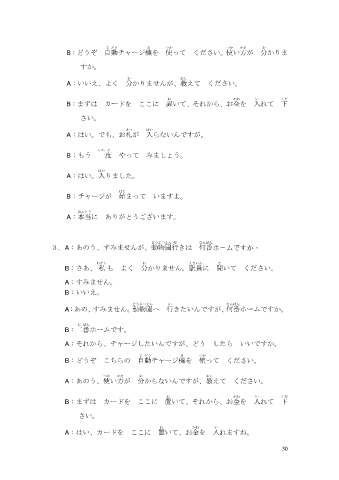 B：どうぞ　自動チャージ機を　使って　ください。使い方が　分かりま
すか。
A：いいえ、よく　分かりませんが、教えて　ください。
B：まずは　カードを　ここに　置いて、それから、お金を　入れて　下
さい。
A：はい。でも、お札が　入らないんですが。
B：もう　一度　やって　みましょう。
A：はい。入りました。
B：チャージが　始まって　いますよ。
A：本当に　ありがとうございます。
3．A：あのう、すみませんが、動物園行きは　何番ホームですか。
B：さあ、私も　よく　分かりません。駅員に　聞いて　ください。
A：すみません。
B：いいえ。
A：あの、すみません。動物園へ　行きたいんですが、何番ホームですか。
B：二番ホームです。
A：それから、チャージしたいんですが、どう　したら　いいですか。
B：どうぞ　こちらの　自動チャージ機を　使って　ください。
A：あのう、使い方が　分からないんですが、教えて　ください。
B：まずは　カードを　ここに　置いて、それから、お金を　入れて　下
さい。
A：はい、カードを　ここに　置いて、お金を　入れますね。
30